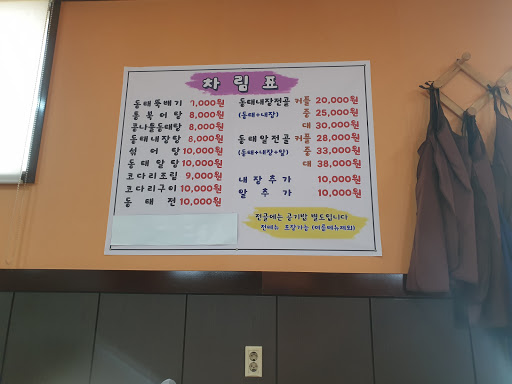 차림표
동태뚝배기 7,000원
통북어탕 8,000원
콩나물동태탕 8,000원
동태내장탕 8,000원
섞어탕 10,000원
동태알탕 10,000원
코다리조림 9,000원
코다리구이 10,000원
동태전 10,000원
동태내장전골 커플 20,000원
(동태+내장) 중 25,000원
대 30,000원
동태알전골 커플 28,000원
(동태+내장+알) 중 33,000원
대 38,000원
내장추가 10,000원
알추가 10,000원
전골에는 공기밥 별도입니다
전메뉴 포장가능 (여름메뉴제외)